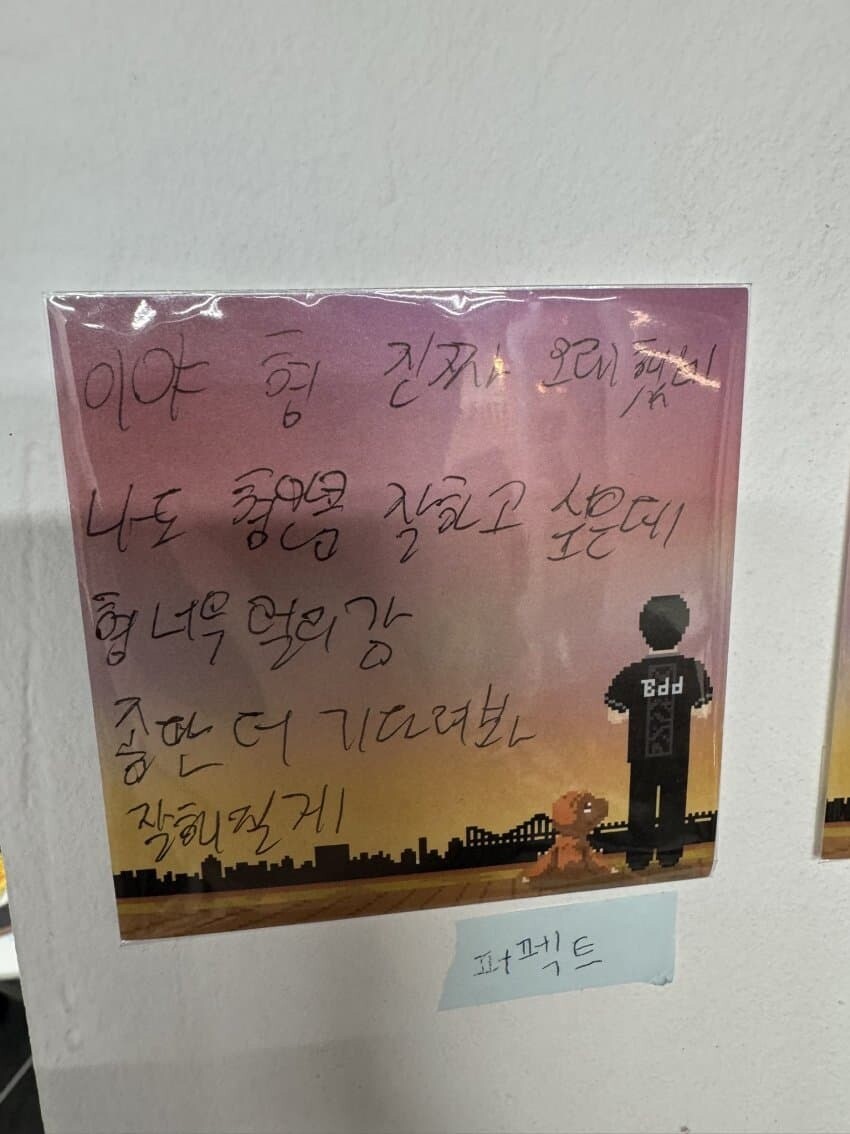 이야 형 진짜 오래했네
나도 형만큼 잘하고 싶은데
형 너무 멀리감
좀만 더 기다려봐
잘해질게
Bdd
퍼펙트